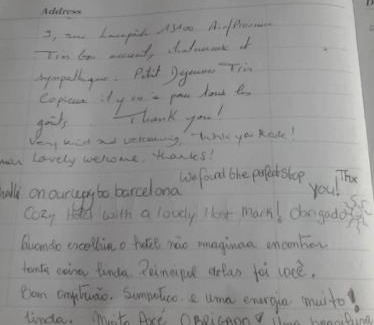 Address
3, rue 13100 Aix
Très bon accueil, chaleureux et
sympathique. Petit Dejeuner Très
Copieux il y en a pour tous les
goûts Thank you!
Very kind and welcoming, Thank you
Lovely welcome, thanks!
We found the perfect stop Thx
on our way to barcelona you!
Cozy Hotel with a lovely host Mark! Obrigado
Quando escolhia o hotel não imaginava encontrar
tanta coisa linda. Principal delas foi você.
Bom anfitrião. Simpatico e uma energia muito!
linda. Muito Axé OBRIGADO Uma